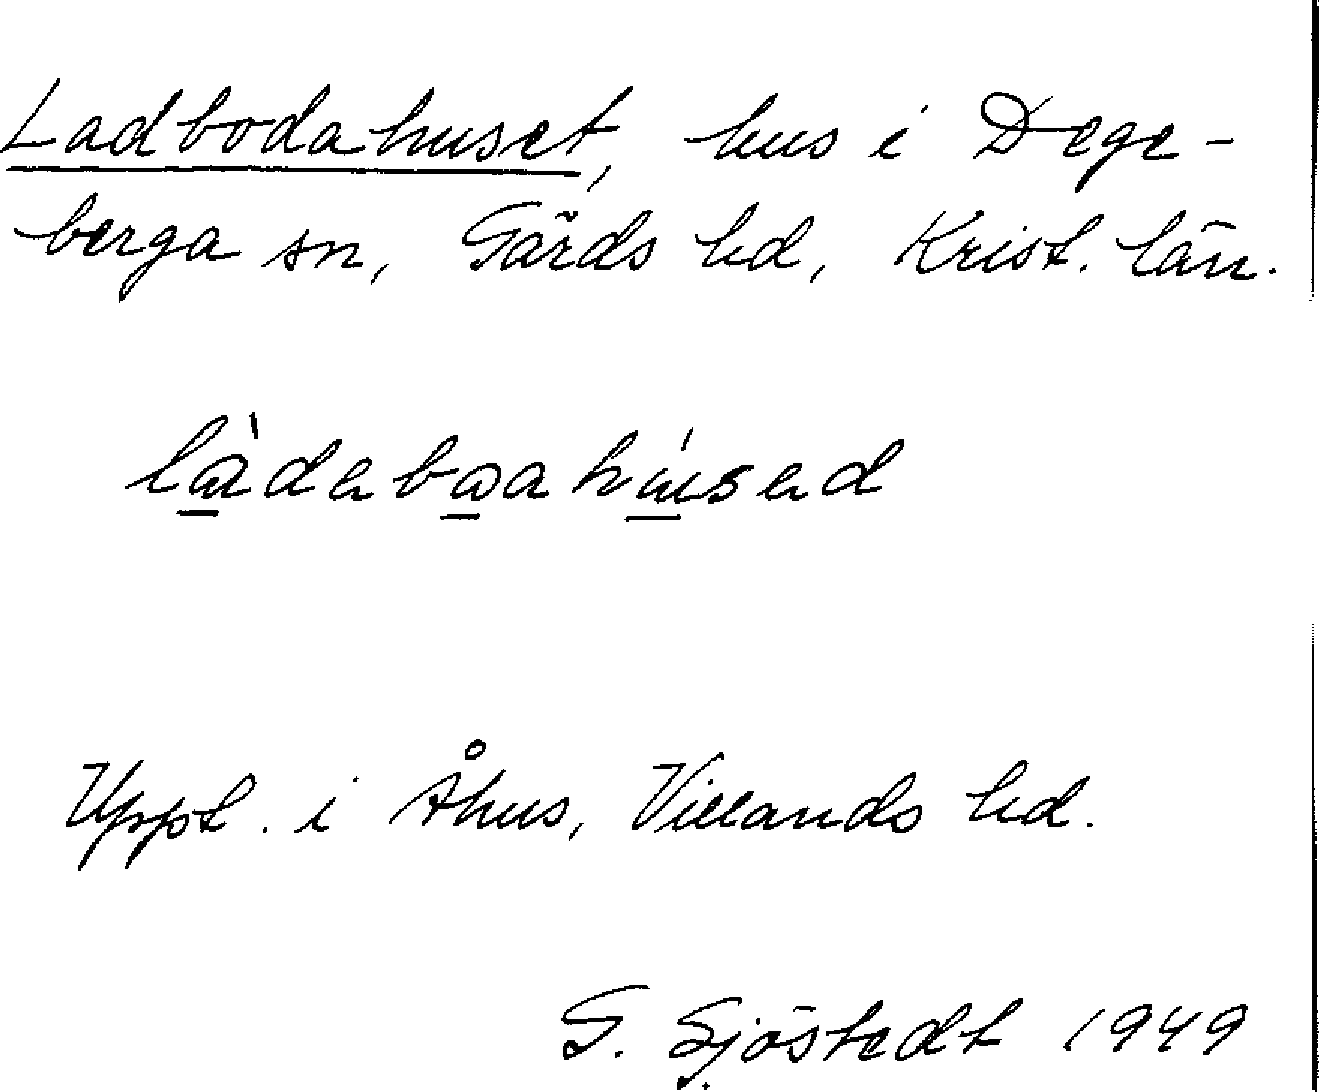 Ladbodahuset, hus i Dege-
berga sn, Gärds hd, Krist. län.
làdeboahúsed
Uppt. i Åhus, Villands hd.
G. Sjöstedt 1949